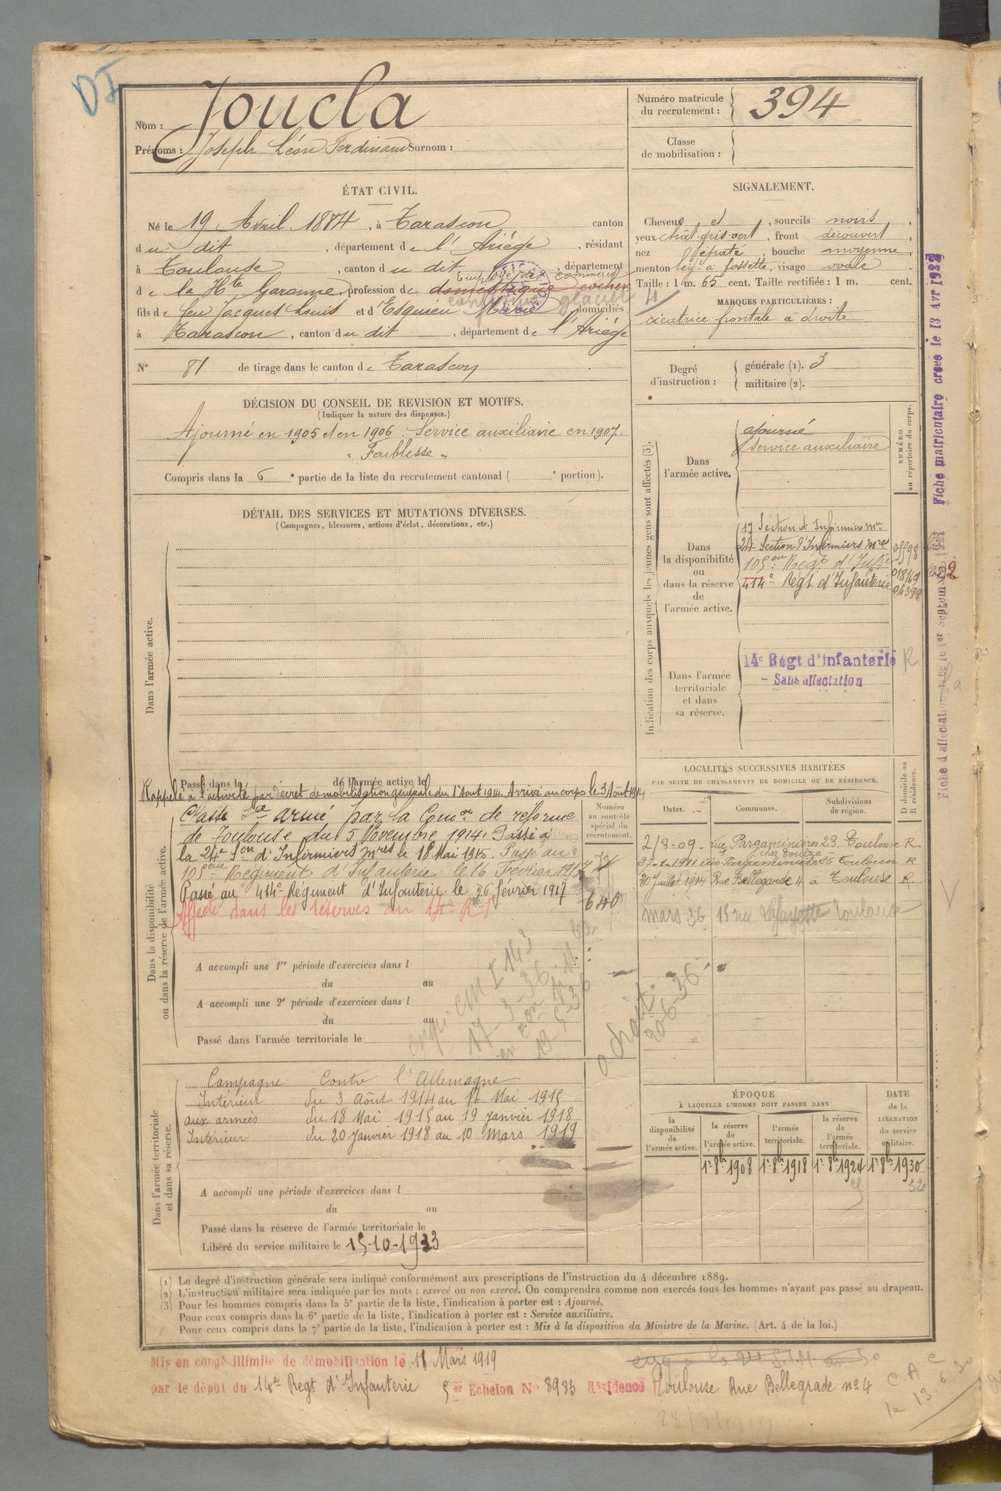 DI
Nom : Joucla
Prénoms : Joseph Léon Ferdinand Surnom :
Numéro matricule du recrutement : 394
Classe de mobilisation :
ÉTAT CIVIL.
Né le 19 Avril 1884, à Tarascon canton
du dit, département de l'Ariège, résidant
à Toulouse, canton du dit, département
de la Hte Garonne, profession de domestique cocher
employé de commerce
glacier
fils de feu Jacques Louis et d'Esquieu Marie domiciliés
à Tarascon, canton du dit, département de l'Ariège
N° 81 de tirage dans le canton de Tarascon
SIGNALEMENT.
Cheveux et, sourcils noirs,
yeux chât. gris vert, front découvert,
nez épaté, bouche moyenne,
menton à fossette, visage ovale
Taille : 1 m. 65 cent. Taille rectifiée : 1 m. cent.
MARQUES PARTICULIÈRES :
cicatrice frontale à droite
Degré d'instruction : générale (1). 3
militaire (2).
DÉCISION DU CONSEIL DE REVISION ET MOTIFS.
(Indiquer la nature des dispenses.)
Ajourné en 1905 et en 1906. Service auxiliaire en 1907.
" Faiblesse "
Compris dans la 6e partie de la liste du recrutement cantonal ( e portion).
DÉTAIL DES SERVICES ET MUTATIONS DIVERSES.
(Campagnes, blessures, actions d'éclat, décorations, etc.)
Indication des corps auxquels les jeunes gens sont affectés (3).
NUMÉRO au répertoire du corps.
Dans l'armée active.
ajourné
Service auxiliaire
Dans la disponibilité ou dans la réserve de l'armée active.
17 Section d'Infirmiers mres
24 Section d'Infirmiers mres
105eme Régt d'Infie
414e Régt d'Infanterie
Dans l'armée territoriale et dans sa réserve.
14e Régt d'Infanterie
- Sans affectation
R
Fiche matriculaire créée le 13 Avr 1932
Dans l'armée active.
Passé dans la de l'armée active le
Rappelé à l'activité par décret de mobilisation générale du 1 Août 1914. Arrivé au corps le 3 Août 1914
Classé Sce armé par la Comon de réforme
de Toulouse du 5 Novembre 1914. Passé à
la 24e Son d'Infirmiers mres le 18 Mai 1915. Passé au
105eme Régiment d'Infanterie le 16 Février 1917
Passé au 414e Régiment d'Infanterie le 26 février 1917
Affecté dans les réserves au 14e R.I.
Numéro au contrôle spécial du recrutement.
640
Dans la disponibilité ou dans la réserve de l'armée active.
A accompli une 1re période d'exercices dans l
du au
A accompli une 2e période d'exercices dans l
du au
Passé dans l'armée territoriale le
LOCALITÉS SUCCESSIVES HABITÉES
PAR SUITE DE CHANGEMENTS DE DOMICILE OU DE RÉSIDENCE.
Dates. Communes. Subdivisions de région. D domicile ou R résidence.
rue Pargaminières 23 Toulouse R
Toulouse R
30 Juillet 1914 Rue Bellegarde 4 à Toulouse R.
mars 36 15 rue Lafayette Toulouse
Dans l'armée territoriale et dans sa réserve.
Campagne Contre l'Allemagne
Intérieur du 3 Août 1914 au 17 Mai 1915
aux armées du 18 Mai 1915 au 19 Janvier 1918
Intérieur du 20 Janvier 1918 au 10 Mars 1919
A accompli une période d'exercices dans l
du au
Passé dans la réserve de l'armée territoriale le
Libéré du service militaire le 15-10-1933
ÉPOQUE
À LAQUELLE L'HOMME DOIT PASSER DANS
la disponibilité de l'armée active.
la réserve de l'armée active.
l'armée territoriale.
la réserve de l'armée territoriale.
DATE de la LIBÉRATION du service militaire.
1r 8bre 1908 1r 8bre 1918 1r 8bre 1924 1r 8bre 1930
32
(1) Le degré d'instruction générale sera indiqué conformément aux prescriptions de l'instruction du 4 décembre 1889.
(2) L'instruction militaire sera indiquée par les mots : exercé ou non exercé. On comprendra comme non exercés tous les hommes n'ayant pas passé au drapeau.
(3) Pour les hommes compris dans la 5e partie de la liste, l'indication à porter est : Ajourné.
Pour ceux compris dans la 6e partie de la liste, l'indication à porter est : Service auxiliaire.
Pour ceux compris dans la 7e partie de la liste, l'indication à porter est : Mis à la disposition du Ministre de la Marine. (Art. 4 de la loi.)
Mis en congé illimité de démobilisation le 11 Mars 1919
par le dépôt du 14e Régt d'Infanterie 5er Echelon N° 8983 Résidence Toulouse Rue Bellegrade n° 4